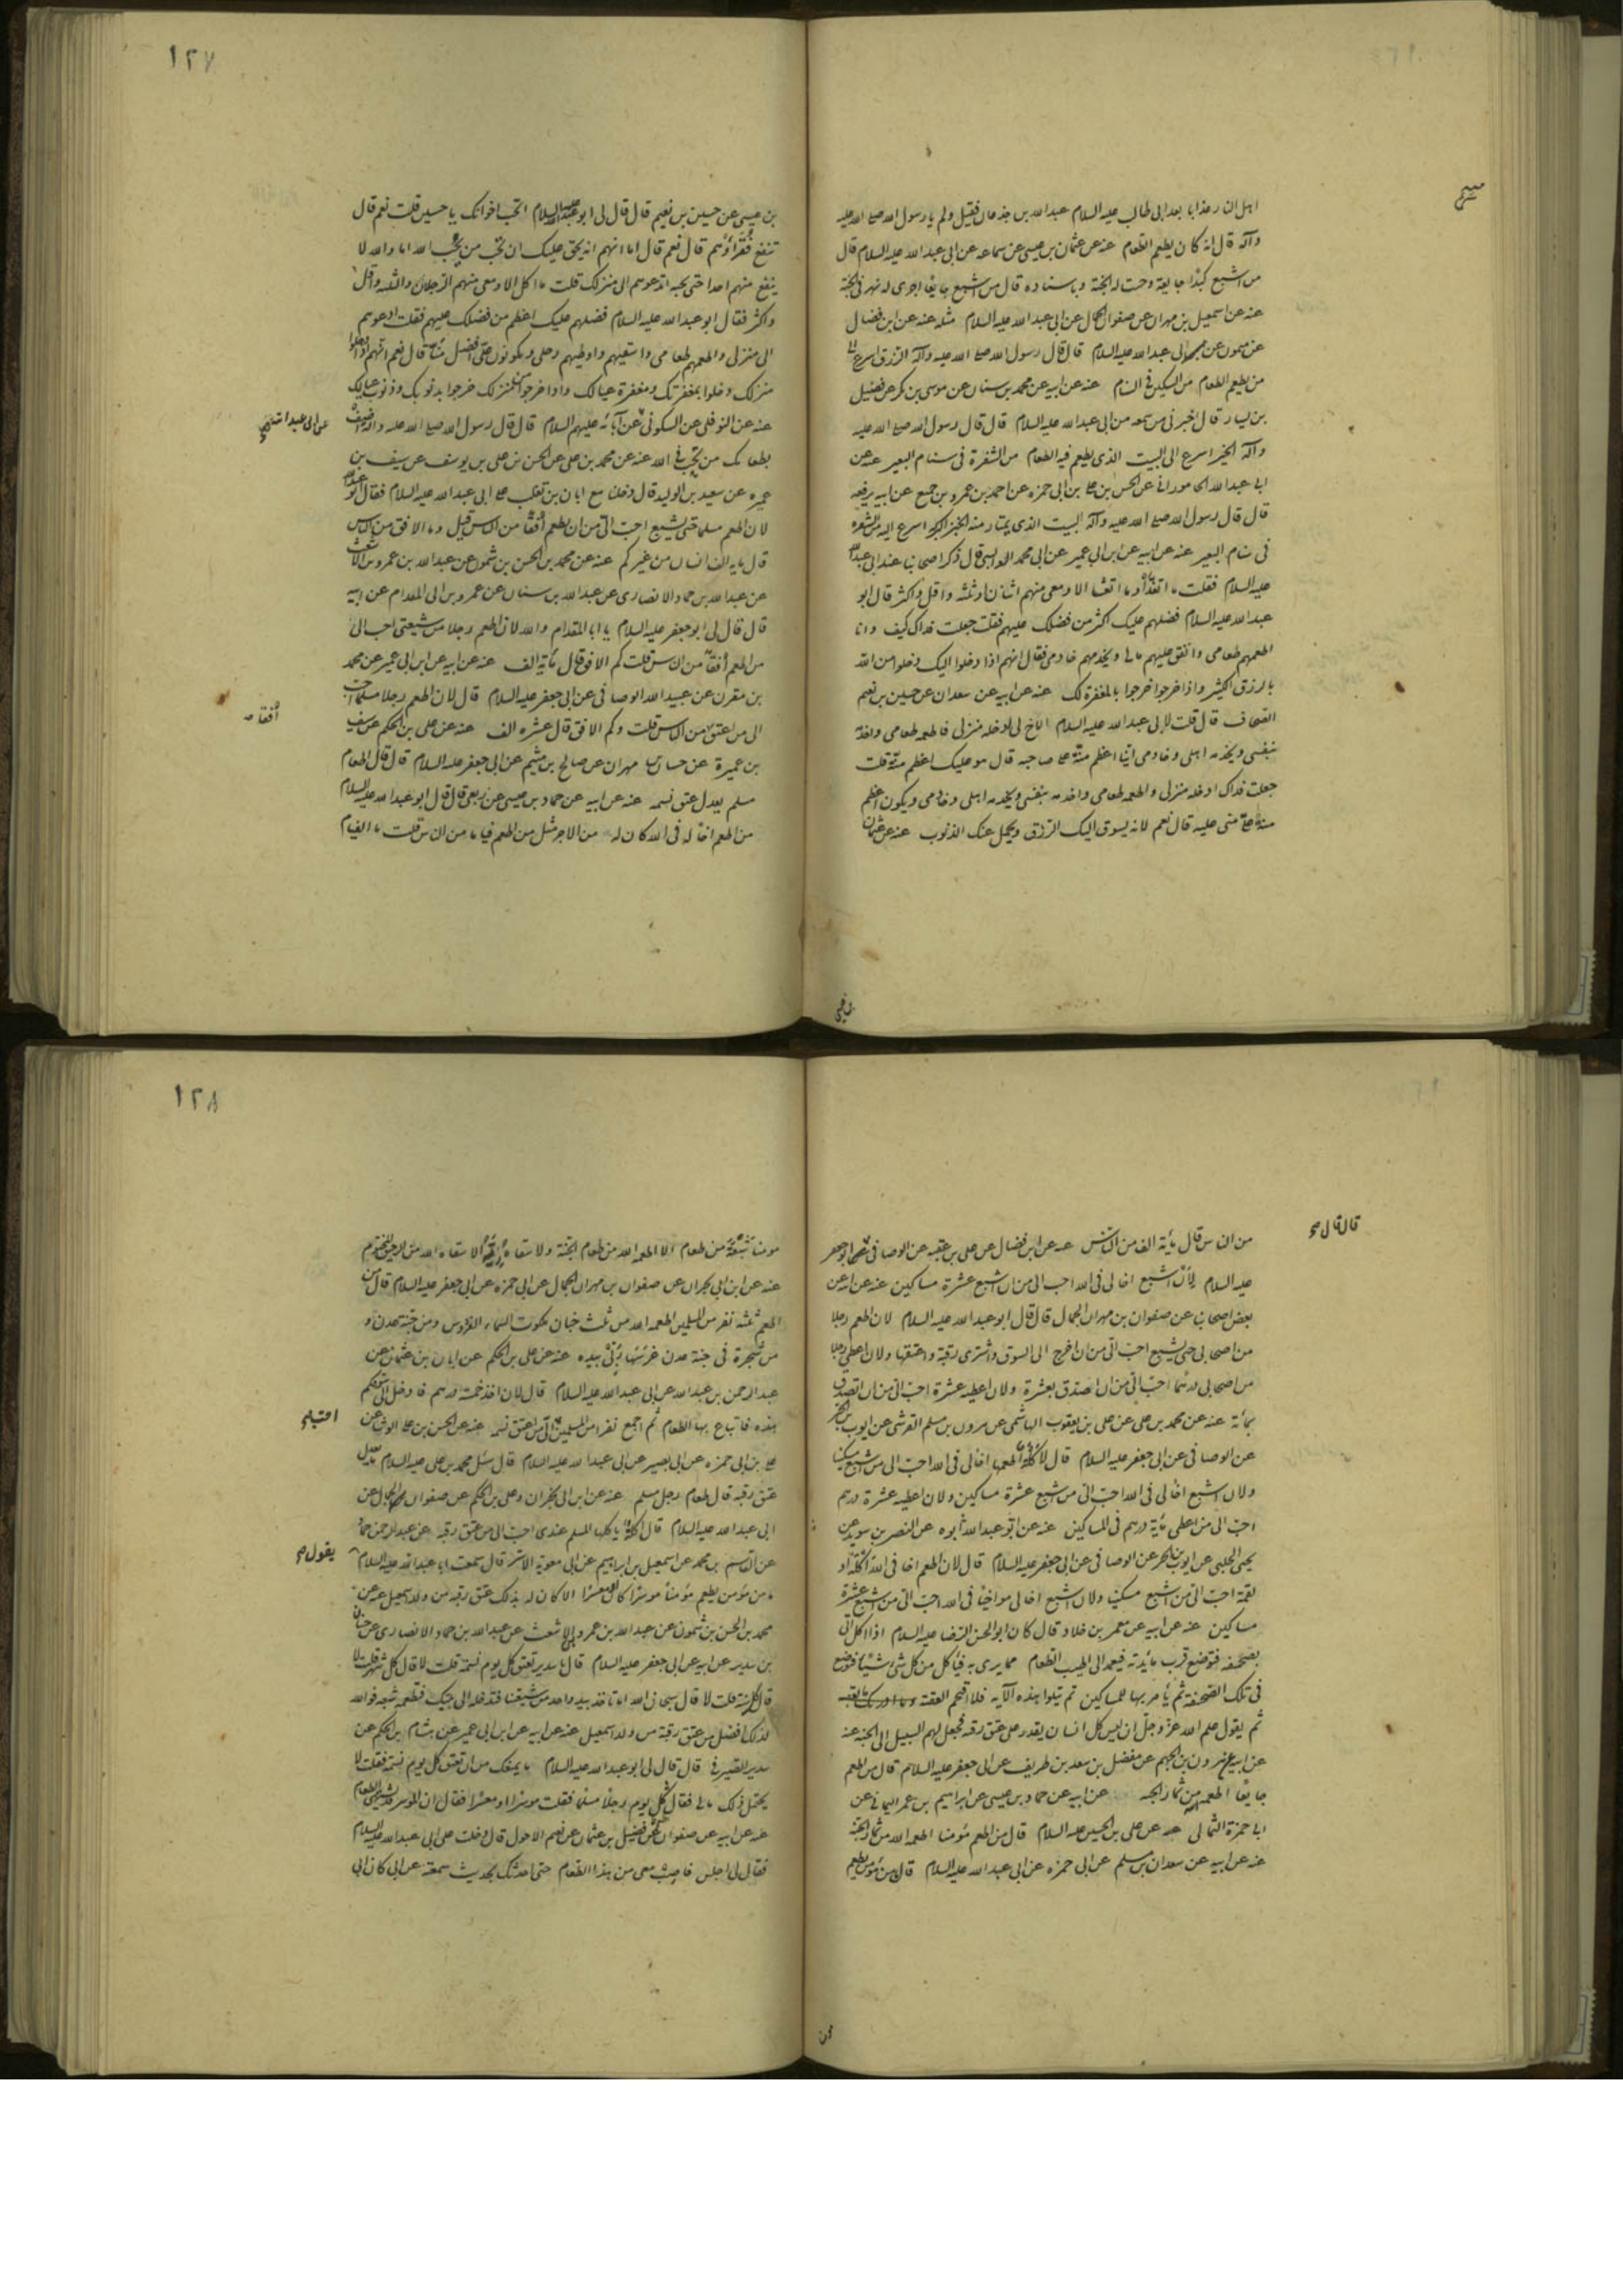 اهل النار عذابا بعد ابى طالب عليه السلام عبد الله بن جذعان فقيل ولم يا رسول الله صلى الله عليه
وآله قال انه كان يطعم الطعام عنه عن عثمان بن عيسى عن سماعه عن ابى عبد الله عليه السلام قال
من اشبع كبدا جايعة وجبت له الجنة وباسناده قال من اشبع جايعا اجرى له نهر فى الجنة
عنه عن اسمعيل بن مهران عن صفوان الجمال عن ابى عبد الله عليه السلام مثله عنه عن ابن فضال
عن ميمون عن ابى عبد الله عليه السلام قال قال رسول الله صلى الله عليه وآله الرزق اسرع الى
من يطعم الطعام من السكين فى السنام عنه عن ابيه عن محمد بن سنان عن موسى بن بكر عن فضيل
بن يسار قال اخبرنى من سمعه من ابى عبد الله عليه السلام قال قال رسول الله صلى الله عليه
وآله الخير اسرع الى البيت الذى يطعم فيه الطعام من الشفرة فى سنام البعير عنه عن
ابى عبد الله الجامورانى عن الحسن بن على بن ابى حمزه عن احمد بن عمرو بن جميع عن ابيه يرفعه
قال قال رسول الله صلى الله عليه وآله البيت الذى يمتار منه الخبز البركة اسرع اليه من الشفرة
فى سنام البعير عنه عن ابيه عن ابن ابى عمير عن ابى محمد الوابشى قال ذكر اصحابنا عند ابى عبد الله
عليه السلام فقلت ما اتغدا وما اتعشا الا ومعى منهم اثنان او ثلثه واقل واكثر قال ابو
عبد الله عليه السلام فضلهم عليك اكثر من فضلك عليهم فقلت جعلت فداك كيف وانا
اطعمهم طعامى وانفق عليهم مالى ويخدمهم خادمى فقال انهم اذا دخلوا اليك دخلوا من الله
بالرزق الكثير واذا خرجوا خرجوا بالمغفرة لك عنه عن ابيه عن سعدان عن حسين بن نعيم
الصحاف قال قلت لابى عبد الله عليه السلام الاخ لى ادخله منزلى فاطعمه طعامى واخدمه
بنفسى ويخدمه اهلى وخادمى اينا اعظم منة على صاحبه قال هو عليك اعظم منة قلت
جعلت فداك ادخله منزلى واطعمه طعامى واخدمه بنفسى ويخدمه اهلى وخادمى ويكون اعظم
منة على منى عليه قال نعم لانه يسوق اليك الرزق ويحمل عنك الذنوب عنه عن عثمان
١٢٧
بن عيسى عن حسين بن نعيم قال قال لى ابو عبد الله عليه السلام اتحب اخوانك يا حسين قلت نعم قال
تنفع فقراؤهم قال نعم قال اما انهم انه يحق عليك ان تحب من يحب الله اما والله لا
ينفع منهم احدا حتى يحبه اتدعوهم الى منزلك قلت ما اكل الا ومعى منهم الرجلان والثلثه واقل
واكثر فقال ابو عبد الله عليه السلام فضلهم عليك اعظم من فضلك عليهم فقلت ادعوهم
الى منزلى واطعمهم طعامى واسقيهم واوطيهم رحلى ويكونون على افضل منا قال نعم انهم اذا دخلوا
منزلك دخلوا بمغفرتك ومغفرة عيالك واذا خرجوا من منزلك خرجوا بذنوبك وذنوب عيالك
عنه عن النوفلى عن السكونى عن آبائه عليهم السلام قال قال رسول الله صلى الله عليه وآله اضف
عن ابى عبد الله
بطعامك من تحب فى الله عنه عن محمد بن على عن الحسن بن على بن يوسف عن سيف بن
عميره عن سعيد بن الوليد قال دخلنا مع ابان بن تغلب على ابى عبد الله عليه السلام فقال ابو عبد الله
لان اطعم مسلما حتى يشبع احب الى من ان اطعم افقا من الناس قيل وما الافق من الناس
قال مايه الف انسان من غيركم عنه عن محمد بن الحسن بن شمون عن عبد الله بن عمرو بن الاشعث
عن عبد الله بن حماد الانصارى عن عبد الله بن سنان عن عمرو بن ابى المقدام عن ابيه
قال قال لى ابو جعفر عليه السلام يا ابا المقدام والله لان اطعم رجلا من شيعتى احب الى
من اطعم افقا من الناس قلت كم الافق قال مأية الف عنه عن ابيه عن ابن ابى عمير عن محمد
بن مقرن عن عبيد الله الوصافى عن ابى جعفر عليه السلام قال لان اطعم رجلا مسلما احب
افقا
الى من اعتق من الناس قلت وكم الافق قال عشره الف عنه عن على بن الحكم عن سيف
بن عميرة عن حسان بن مهران عن صالح بن ميثم عن ابى جعفر عليه السلام قال قال اطعام
مسلم يعدل عتق نسمه عنه عن ابيه عن حماد بن عيسى عن ربعى قال قال ابو عبد الله عليه السلام
من اطعم اخا له فى الله كان له من الاجر مثل من اطعم فياما من الناس قلت ما الفيام
من الناس قال مأية الف من الناس عنه عن ابن فضال عن على بن عقبه عن الوصافى عن ابى جعفر
قال قال
عليه السلام لان اشبع اخا لى فى الله احب الى من ان اشبع عشرة مساكين عنه عن ابيه عن
بعض اصحابنا عن صفوان بن مهران الجمال قال قال ابو عبد الله عليه السلام لان اطعم رجلا
من اصحابى حتى يشبع احب الى من ان اخرج الى السوق واشترى رقبة واعتقها ولان اعطى رجلا
من اصحابى درهما احب الى من ان اتصدق بعشرة ولان اعطيه عشرة احب الى من ان اتصدق
بمأية عنه عن محمد بن على عن على بن يعقوب الهاشمى عن هرون بن مسلم القرشى عن ايوب بن الحر
عن الوصافى عن ابى جعفر عليه السلام قال لاكلة اطعمها اخا لى فى الله احب الى من اشبع مسكينا
ولان اشبع اخا لى فى الله احب الى من اشبع عشرة مساكين ولان اعطيه عشرة درهم
احب الى من اعطى مأية درهم فى المساكين عنه عن ابو عبد الله ابوه عن النضر بن سويد عن
يحيى الحلبى عن ايوب بن الحر عن الوصافى عن ابى جعفر عليه السلام قال لان اطعم اخا فى الله اكلة او
لقمة احب الى من اشبع مسكينا ولان اشبع اخا لى مواخيا فى الله احب الى من اشبع عشرة
مساكين عنه عن ابيه عن معمر بن خلاد قال كان ابو الحسن الرضا عليه السلام اذا اكل اتى
بصحفه فتوضع قرب مائدته فيعمد الى اطيب الطعام مما يرى به فيأكل من كل شى شيئا فتوضع
فى تلك الصحفة ثم يأمر بها للمساكين ثم يتلوا هذه الآيه فلا اقتحم العقبة وما ادريك ما العقبه
ثم يقول علم الله عز وجل ان ليس كل انسان يقدر على عتق رقبه فجعل لهم السبيل الى الجنة عنه
عن ابيه عن هرون بن الجهم عن مفضل بن سعد بن طريف عن ابى جعفر عليه السلام قال من اطعم
جايعا اطعمه الله من ثمار الجنه عن ابيه عن حماد بن عيسى عن ابراهيم بن عمر اليمانى عن
ابى حمزة الثمالى عن على بن الحسين عليه السلام قال من اطعم مؤمنا اطعمه الله من ثمار الجنة
عنه عن ابيه عن سعدان بن مسلم عن ابى حمزه عن ابى عبد الله عليه السلام قال من مؤمن يطعم
١٢٨
مومنا شبعة من طعام الا اطعمه الله من طعام الجنة ولا سقاه رية الا سقاه الله من الرحيق المختوم
عنه عن ابن ابى نجران عن صفوان بن مهران الجمال عن ابى حمزه عن ابى جعفر عليه السلام قال من
اطعم ثلثه نفر من المسلمين اطعمه الله من ثلث جنان ملكوت السماء الفردوس ومن جنة عدن و
من شجرة فى جنة عدن غرسها ربى بيده عنه عن على بن الحكم عن ابان بن عثمان عن
عبد الرحمن بن عبد الله عن ابى عبد الله عليه السلام قال لان اخذ خمسة درهم فادخل الى سوقكم
هذه فابتاع بها الطعام ثم اجمع نفرا من المسلمين الى من اعتق نسمه عنه عن الحسن بن على الوشا عن
احب
على بن ابى حمزه عن ابى بصير عن ابى عبد الله عليه السلام قال سئل محمد بن على عليه السلام ما يعدل
عتق رقبه قال اطعام رجل مسلم عنه عن ابن ابى نجران وعلى بن الحكم عن صفوان الجمال عن
ابى عبد الله عليه السلام قال اكلة ياكلها المسلم عندى احب الى من عتق رقبه عنه عن عبد الرحمن بن حماد
عن القاسم بن محمد عن اسمعيل بن ابراهيم عن ابى معوية الاشتر قال سمعت ابا عبد الله عليه السلام
يقول
ما من مؤمن يطعم مؤمنا موسرا كان او معسرا الا كان له بذلك عتق رقبه من ولد اسمعيل عنه عن
محمد بن الحسن بن شمون عن عبد الله بن عمرو بن الاشعث عن عبد الله بن حماد الانصارى عن حنان
بن سدير عن ابيه عن ابى جعفر عليه السلام قال يا سدير تعتق كل يوم نسمة قلت لا قال كل شهر قلت لا
قال كل سنة قلت لا قال سبحان الله اما تاخذ بيد واحد من شيعتنا فتدخله الى بيتك فتطعمه شبعه فوالله
لذلك افضل من عتق رقبة من ولد اسمعيل عنه عن ابيه عن ابن ابى عمير عن هشام بن الحكم عن
سدير الصيرفى قال قال لى ابو عبد الله عليه السلام ما يمنعك من ان تعتق كل يوم نسمة فقلت لا
يحتمل ذلك مالى فقال كل يوم رجلا مسلما فقلت موسرا او معسرا فقال ان الموسر قد يشتهى الطعام
عنه عن ابيه عن صفوان عن فضيل بن عثمان عن نعيم الاحول قال دخلت على ابى عبد الله عليه السلام
فقال لى اجلس فاصب معى من هذا الطعام حتى احدثك بحديث سمعته عن ابى كان ابى